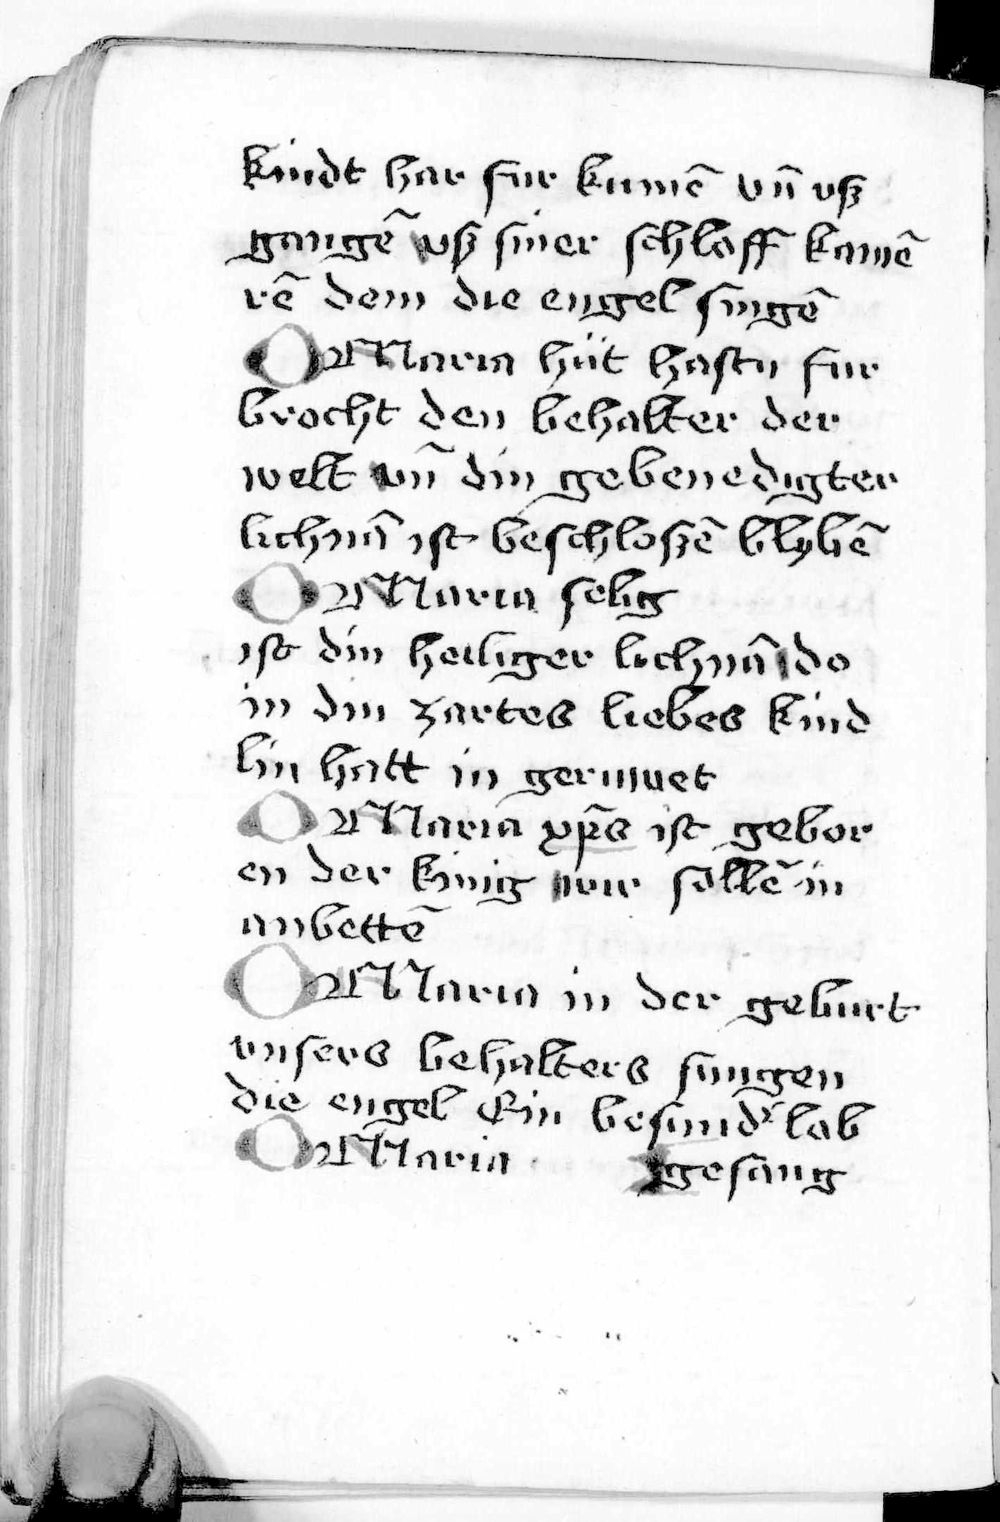 kindt har fur kumē vn̄ vß
gangē vß siner schloff kamē
rē dem die engel singē
O Maria hüt hastu fur
brocht den behalter der
welt vn̄ din gebenedigter
lichnā ist beschloßē blybē
O Maria selig
ist din heiliger lichnā do
in din zartes liebes kind
lin hatt in geruwet
O Maria xp̄s ist gebor
en der kinig wir söllē in
anbettē
O Maria in der geburt
vnsers behalters sungen
die engel Ein besund' lob
O Maria gesang